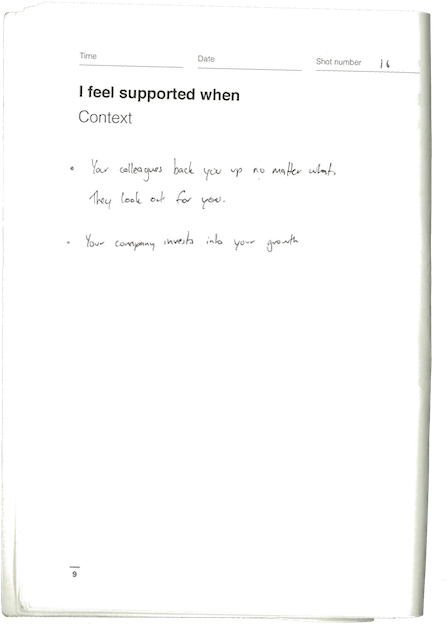 Time
Date
Shot number 16
I feel supported when
Context
• Your colleagues back you up no matter what.
They look out for you.
• Your company invests into your growth
9